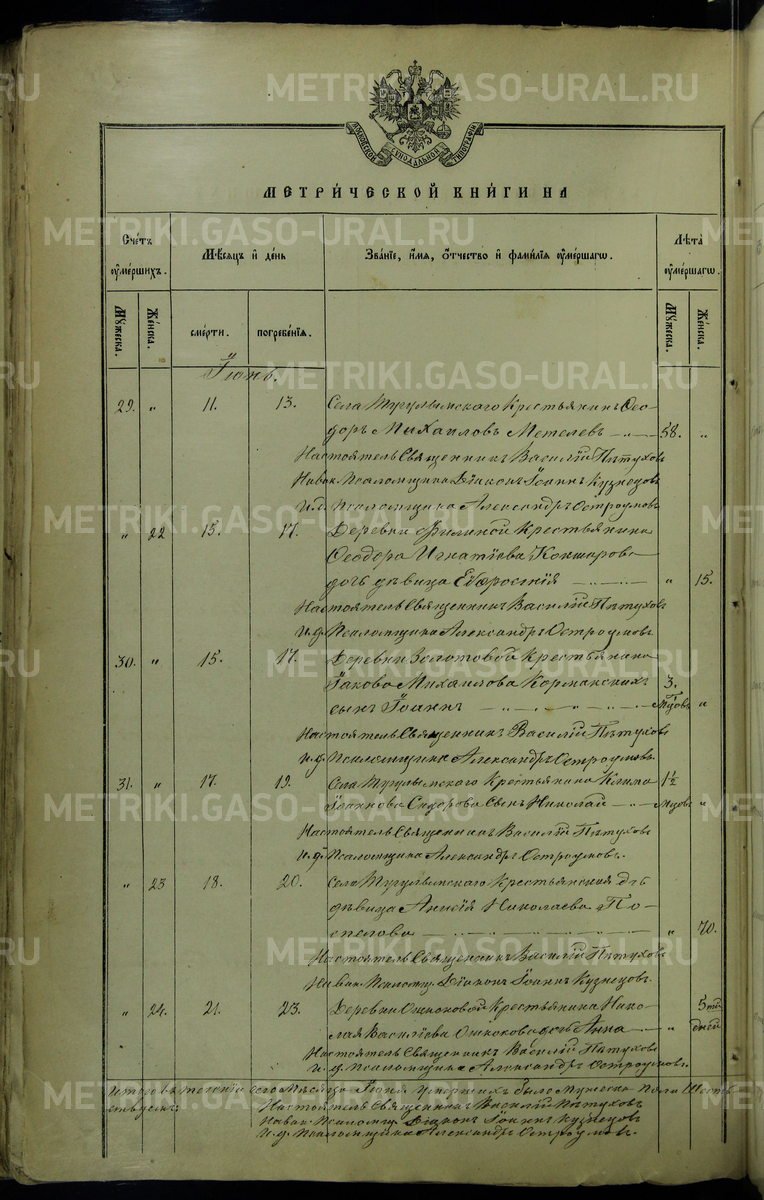 МОСКОВСКОЙ СѴНОДАЛЬНОЙ ТИПОГРАФІИ
МЕТРИ́ЧЕСКОЙ КНИ́ГИ НА
Сче́тъ ᲂу҆ме́ршихъ.
Мѣ́сяцъ и҆ де́нь
Зва́нїе, и҆́мя, ѻ҆́тчество и҆ фами́лїя ᲂу҆ме́ршагѡ.
Лѣ́та ᲂу҆ме́ршагѡ.
Мꙋ́жеска.
Же́нска.
сме́рти.
погребе́нїя.
Мꙋ́жеска.
Же́нска.
Іюнь.
29. " 11. 13. Села Тугулымского Крестьянинъ Ѳео-
доръ Михаиловъ Метелевъ 58. "
Настоятель Священникъ Василій Пѣтуховъ
На вак. Псаломщика Діаконъ Іоаннъ Кузнецовъ
И.д. Псаломщика Александръ Остроумовъ
" 22 15. 17. Деревни Филиной Крестьянина
Ѳеодора Игнатіева Коншарова
дочь дѣвица Евфросинія " 15.
Настоятель Священникъ Василій Пѣтуховъ
И.д. Псаломщика Александръ Остроумовъ
30. " 15. 17. Деревни Золотовой Крестьянина
Іакова Михаилова Кормакскихъ 3.
сынъ Іоаннъ Мцовъ "
Настоятель Священникъ Василій Пѣтуховъ
И.д. Псаломщика Александръ Остроумовъ
31. " 17. 19. Села Тугулымского Крестьянина Клима 1½
Іоаннова Сидорова сынъ Николай Мцовъ "
Настоятель Священникъ Василій Пѣтуховъ
И.д. Псаломщика Александръ Остроумовъ.
" 23 18. 20. Села Тугулымского Крестьянская дчь
дѣвица Анисія Николаева По-
спелова " 70.
Настоятель Священникъ Василій Пѣтуховъ
На вак. Псаломщ. Діаконъ Іоаннъ Кузнецовъ.
" 24. 21. 23. Деревни Ошкоковой Крестьянина Нико- 5ти
лая Василіева Ошкокова дочь Анна " дней
Настоятель Священникъ Василій Пѣтуховъ
И.д. Псаломщика Александръ Остроумовъ.
Итого въ теченіи сего мѣсяца Іюня умершихъ было Мужеска пола Шесть
Настоятель Священникъ Василій Пѣтуховъ
На вак. Псаломщ. Діаконъ Іоаннъ Кузнецовъ
И.д. Псаломщика Александръ Остроумовъ.
METRIKI.GASO-URAL.RU